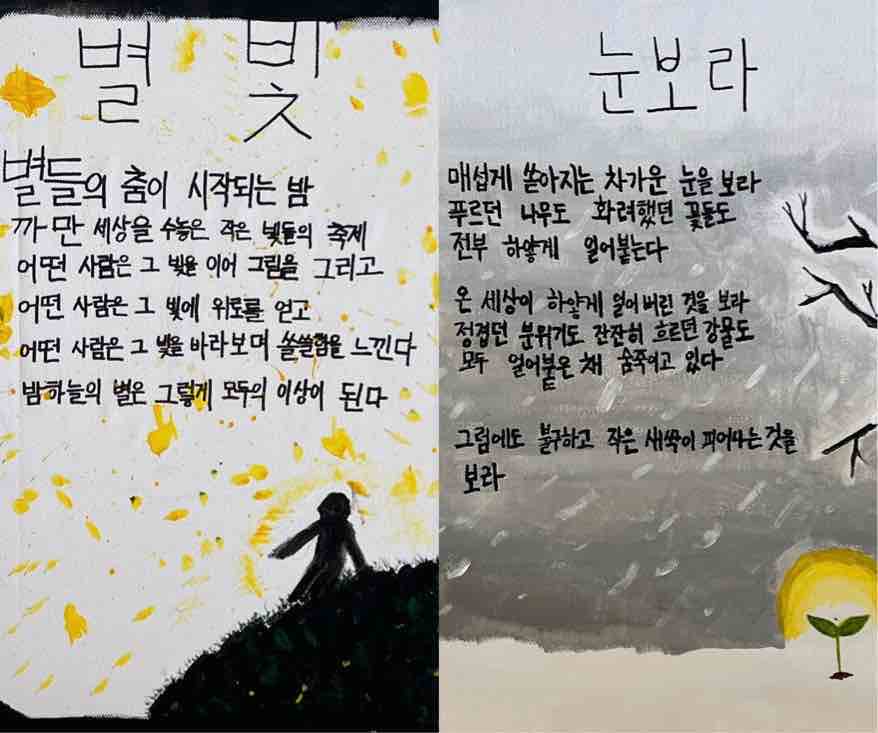 별 빛
별들의 춤이 시작되는 밤
까만 세상을 수놓은 작은 빛들의 축제
어떤 사람은 그 빛을 이어 그림을 그리고
어떤 사람은 그 빛에 위로를 얻고
어떤 사람은 그 빛을 바라보며 쓸쓸함을 느낀다
밤하늘의 별은 그렇게 모두의 이상이 된다
눈보라
매섭게 쏟아지는 차가운 눈을 보라
푸르던 나무도 화려했던 꽃들도
전부 하얗게 얼어붙는다
온 세상이 하얗게 얼어버린 것을 보라
정겹던 분위기도 잔잔히 흐르던 강물도
모두 얼어붙은 채 숨죽이고 있다
그럼에도 불구하고 작은 새싹이 피어나는 것을
보라